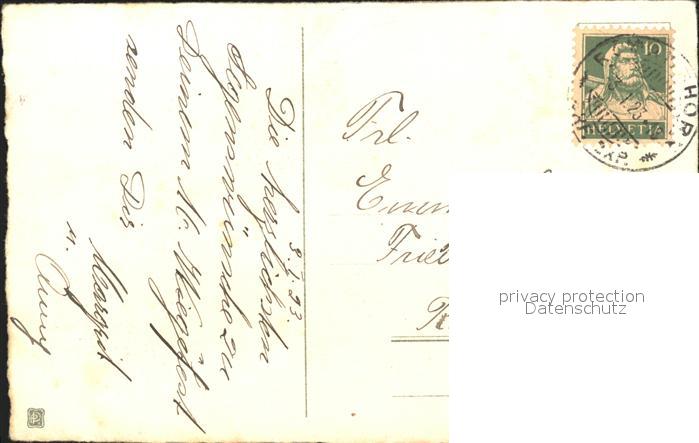 3. 4. 23.
Die herzlichsten
Segenswünsche zu
Deinem N. Wiegefest
senden Dir
Margrit
u. Anny
Frl.
Emm
Frie
10
HELVETIA
privacy protection
Datenschutz